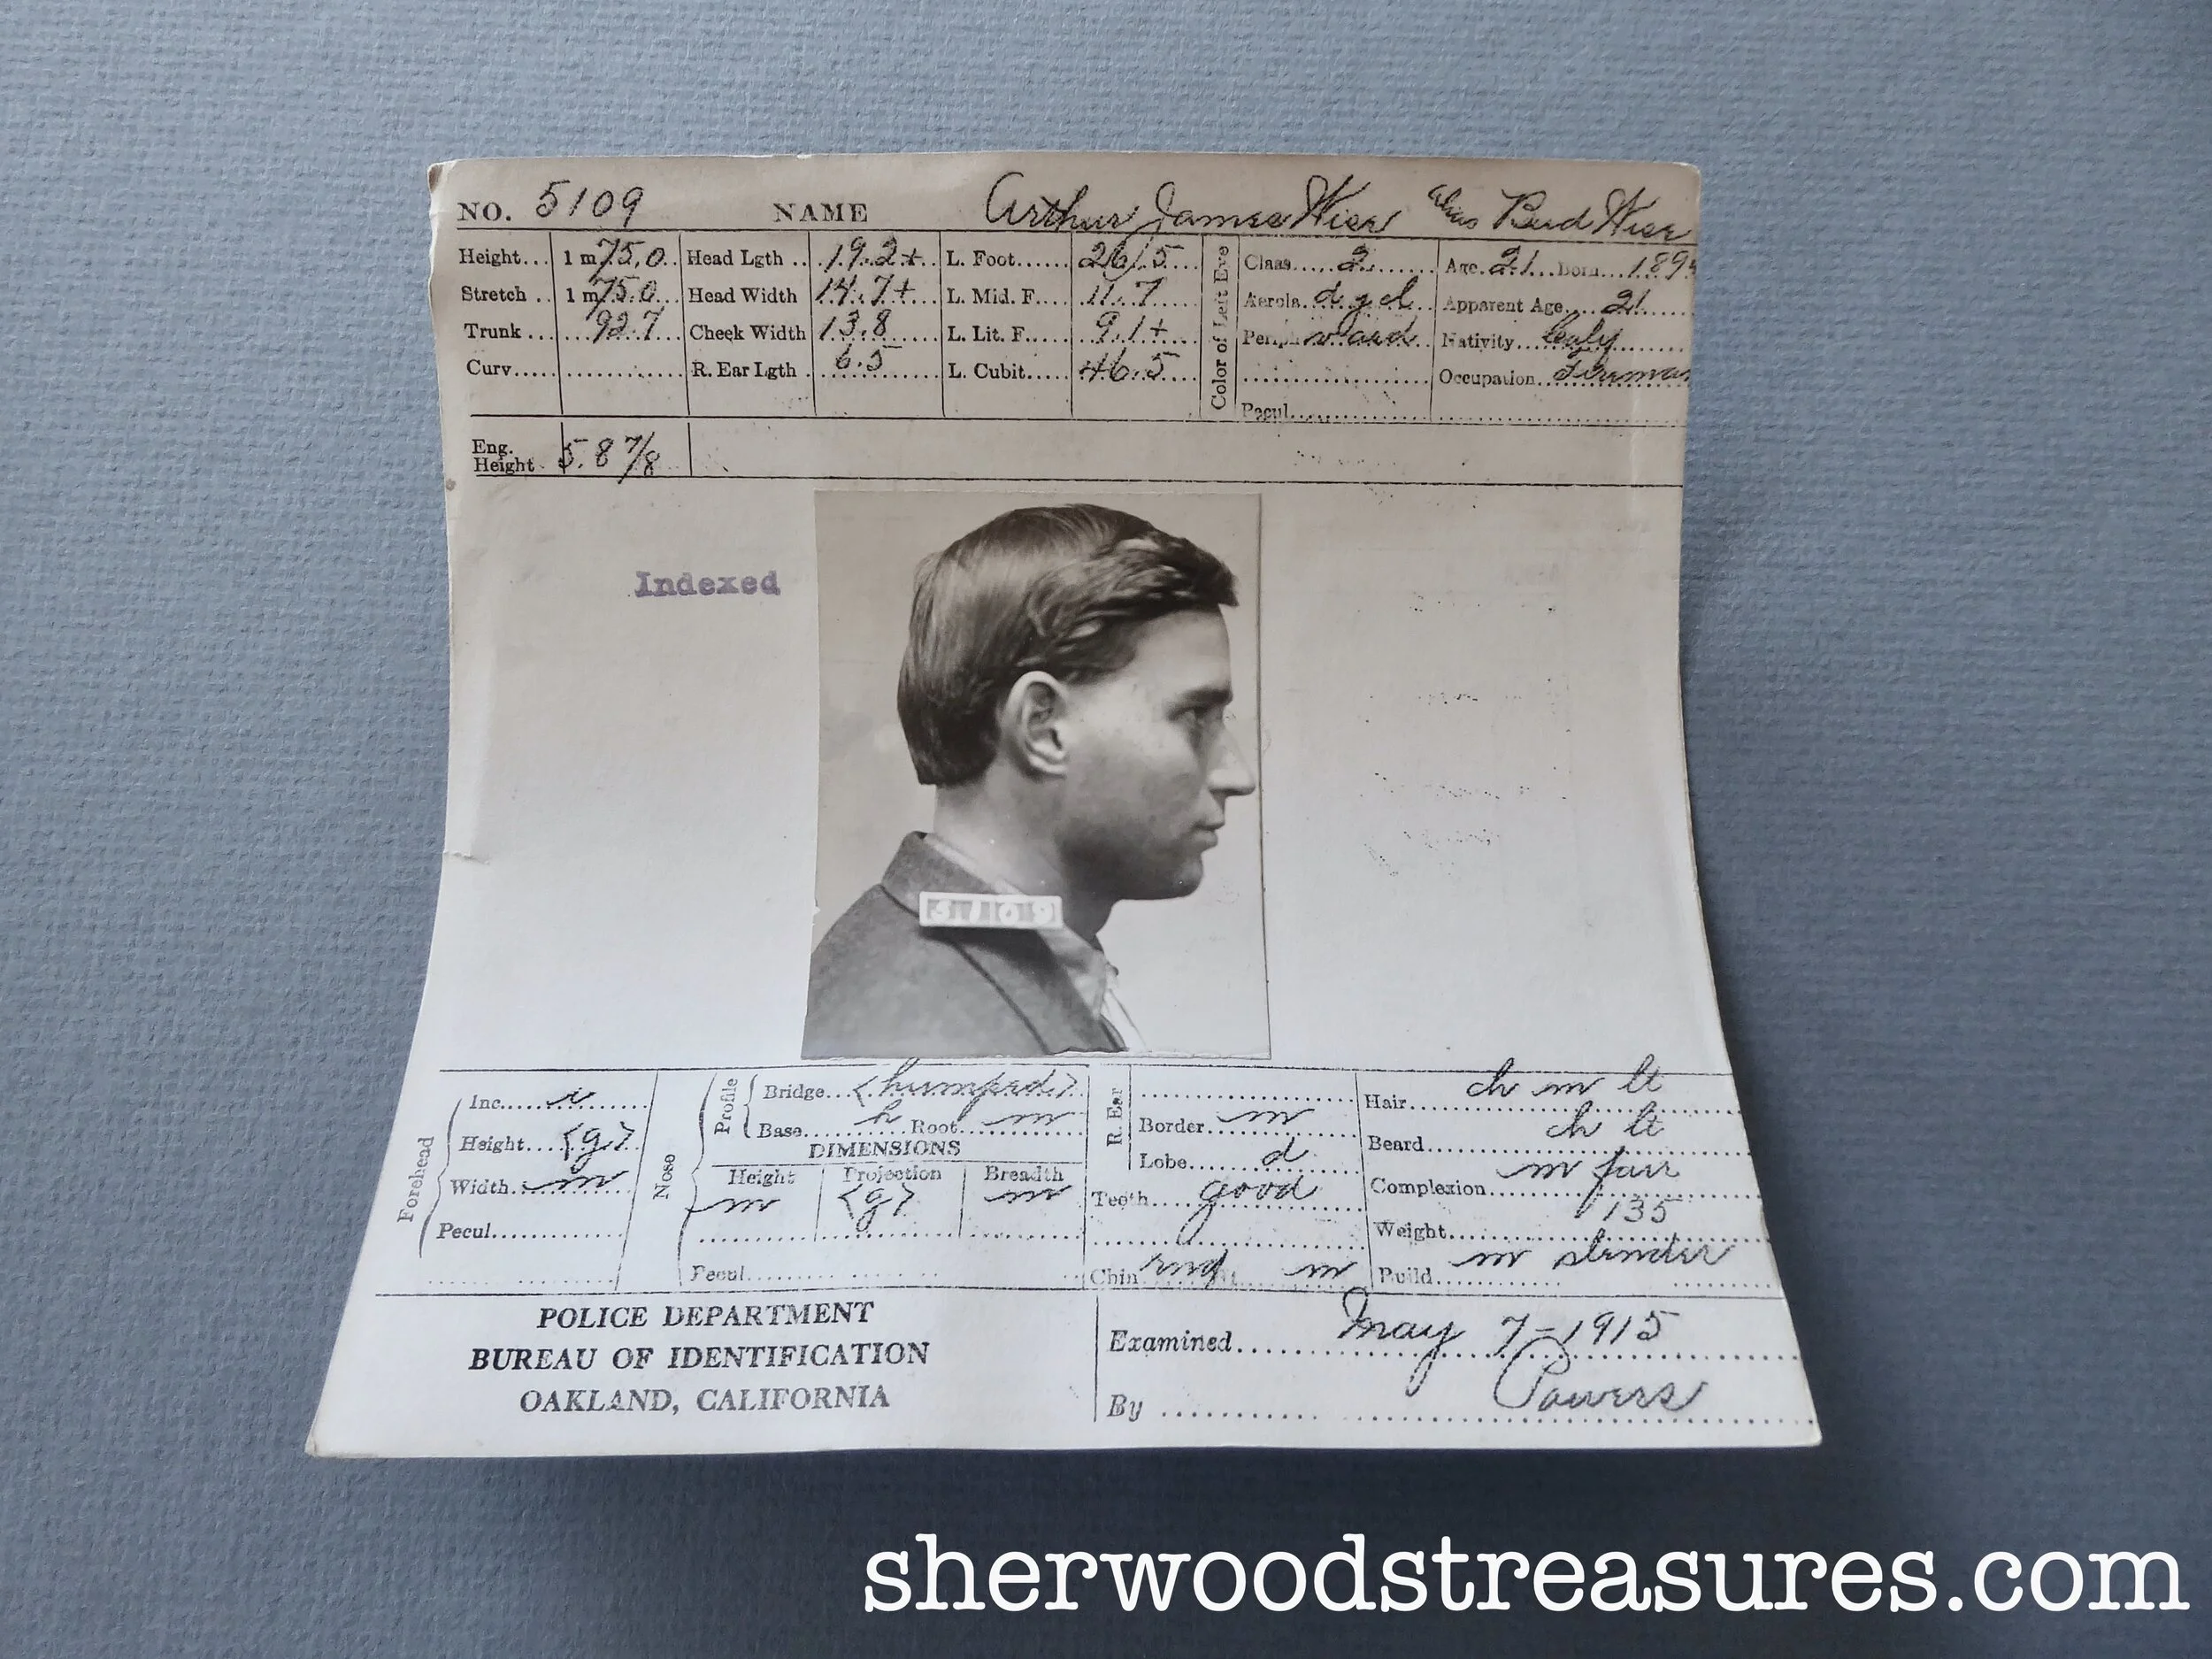 NO. 5109 NAME Arthur James Wise Alias Bud Wise
Height... 1 m 75.0 Head Lgth .. 19.2+ L. Foot...... 26.5 Color of Left Eye Class..... 2 Age. 21 Born... 189
Stretch .. 1 m 75.0 Head Width 14.7+ L. Mid. F.... 11.7 Aerola. Apparent Age... 21
Trunk ... 92.7 Cheek Width 13.8 L. Lit. F..... 9.1+ Periph Nativity...
Curv..... R. Ear Lgth . 6.5 L. Cubit..... 46.5 Occupation..
Pecul.
Eng.
Height 5.8 7/8
Indexed
5109
Forehead Inc..... Nose Profile Bridge... (humped) R. Ear Hair... ch m lt
Height.... (g) Base... h Root. m Border... m Beard... ch lt
DIMENSIONS Lobe.... d
Width.. m Height Projection Breadth Teeth.... good Complexion... m fair
m (g) m Weight... 135
Pecul. Pecul. Chin m Build... m slender
POLICE DEPARTMENT
BUREAU OF IDENTIFICATION
OAKLAND, CALIFORNIA
Examined... May 7-1915
By ... Powers
sherwoodstreasures.com